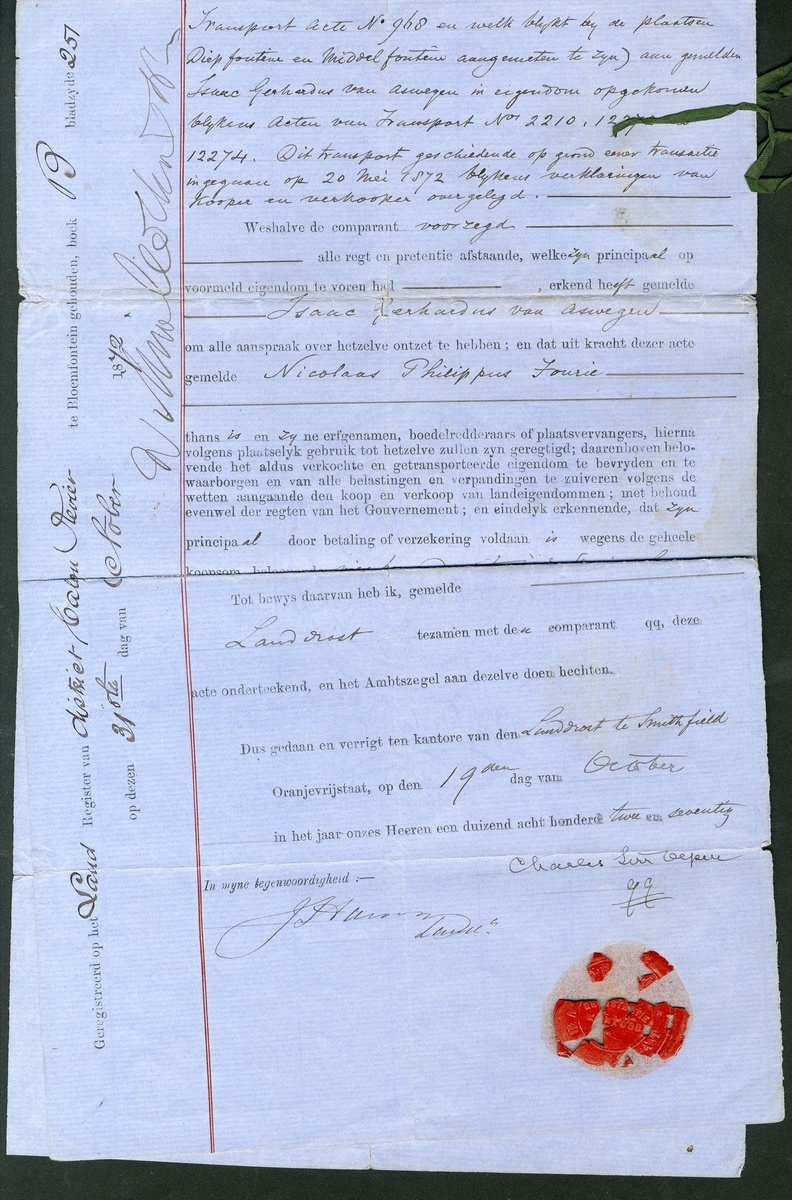 Transport Acte No 968 en welk blykt by de plaatsen
Diepfontein en Middelfontein aangemeten te zyn) aan gemelden
Isaac Gerhardus van Aswegen in eigendom opgekomen
blykens Acten van Transport Nos 2210,
12274. Dit transport geschiedende op grond eener transactie
ingegaan op 20 Mei 1872 blykens verklaringen van
Kooper en verkooper overgelegd.
Weshalve de comparant voorzegd
alle regt en pretentie afstaande, welke zyn principaal op
voormeld eigendom te voren had , erkend heeft gemelde
Isaac Gerhardus van Aswegen
om alle aanspraak over hetzelve ontzet te hebben; en dat uit kracht dezer acte
gemelde Nicolaas Philippus Fourie
thans is en zyne erfgenamen, boedelredderaars of plaatsvervangers, hierna
volgens plaatselyk gebruik tot hetzelve zullen zyn geregtigd; daarenboven belo-
vende het aldus verkochte en getransporteerde eigendom te bevryden en te
waarborgen en van alle belastingen en verpandingen te zuiveren volgens de
wetten aangaande den koop en verkoop van landeigendommen; met behoud
evenwel der regten van het Gouvernement; en eindelyk erkennende, dat zyn
principaal door betaling of verzekering voldaan is wegens de geheele
koopsom
Tot bewys daarvan heb ik, gemelde
Landdrost tezamen met den comparant qq, deze
acte onderteekend, en het Ambtszegel aan dezelve doen hechten.
Dus gedaan en verrigt ten kantore van den Landdrost te Smithfield
Oranjevrijstaat, op den 19den dag van October
in het jaar onzes Heeren een duizend acht honderd twee en seventig
In myne tegenwoordigheid :—
Charles
qq
Geregistreerd op het Land Register van district Caledon Rivier te Bloemfontein gehouden, boek 19 bladzyde 251
op dezen 31ste dag van October 1872